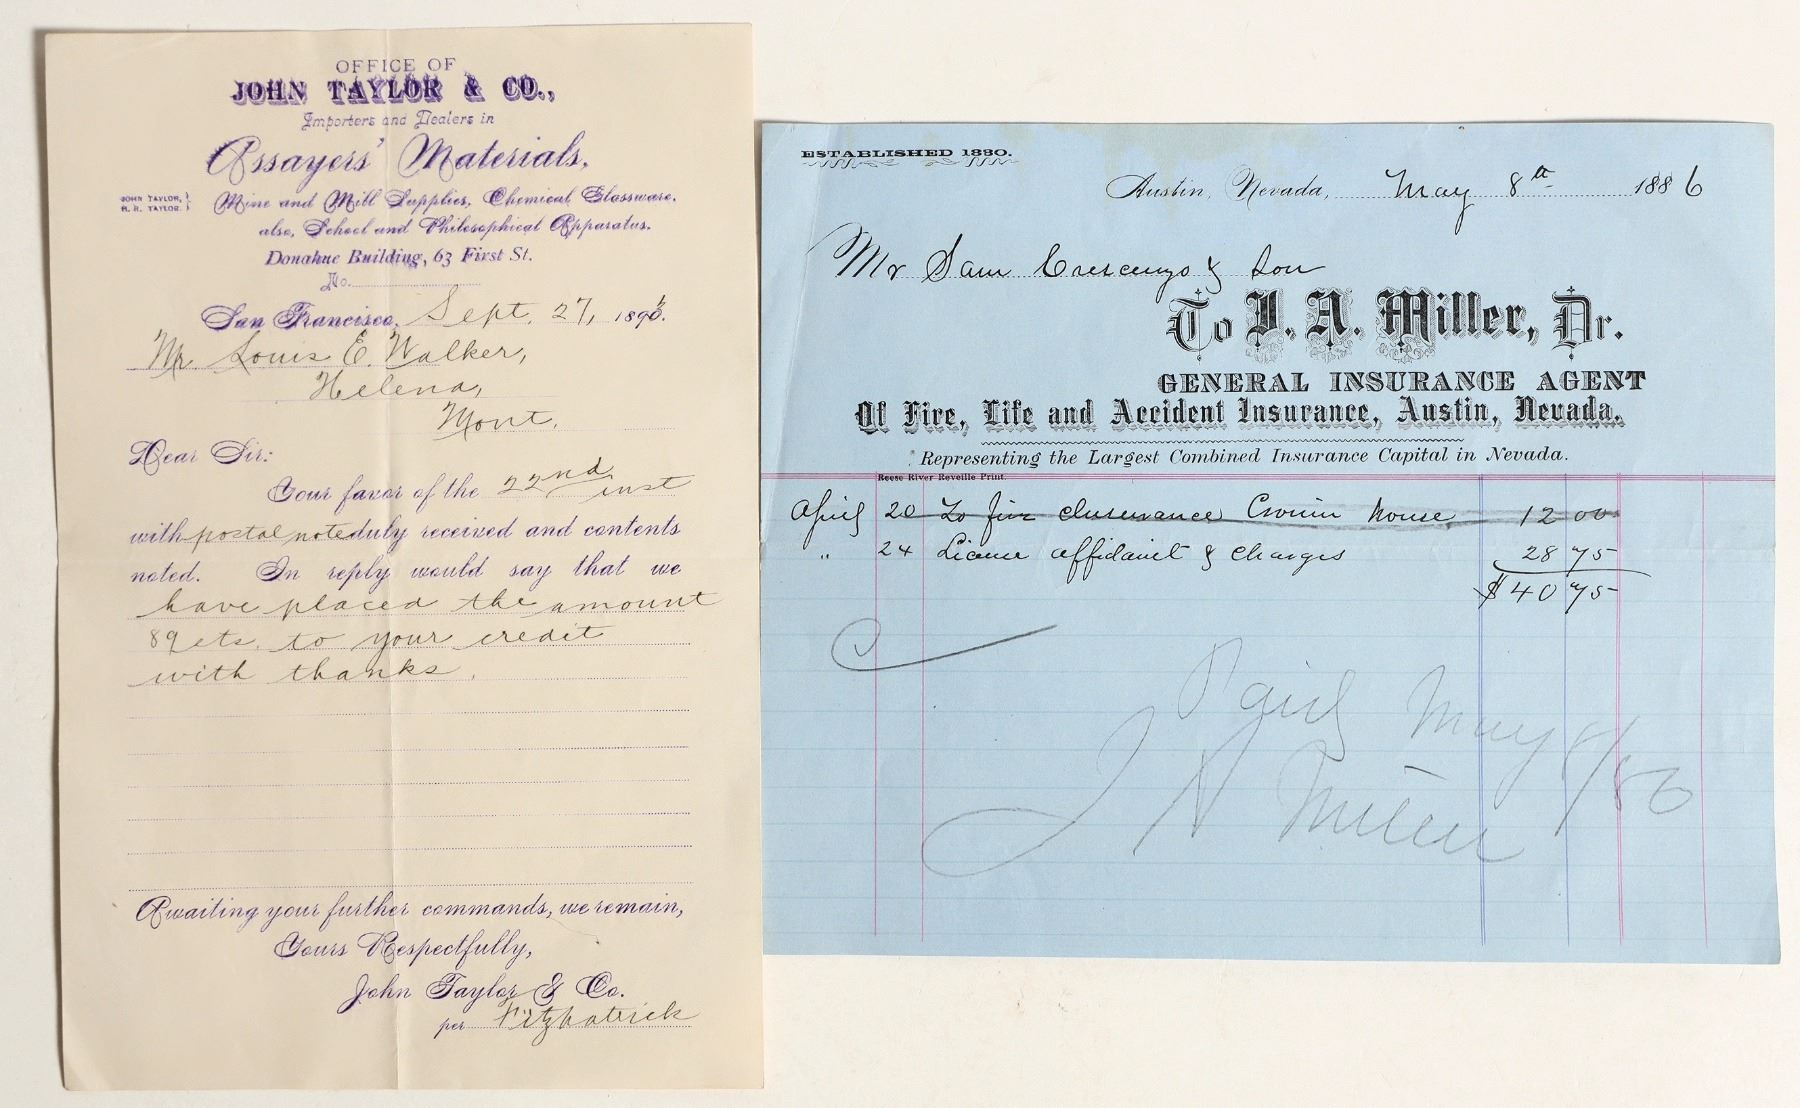 OFFICE OF
JOHN TAYLOR & CO.,
Importers and Dealers in
Assayers' Materials,
JOHN TAYLOR, }
H. R. TAYLOR. }
Mine and Mill Supplies, Chemical Glassware,
also, School and Philosophical Apparatus.
Donahue Building, 63 First St.
No.
San Francisco, Sept. 27, 189
Mr. Louis E. Walker,
Helena,
Mont.
Dear Sir:
Your favor of the 22nd inst
with postal note duly received and contents
noted. In reply would say that we
have placed the amount
89cts. to your credit
with thanks.
Awaiting your further commands, we remain,
Yours Respectfully,
John Taylor & Co.
per Fitzpatrick
ESTABLISHED 1880.
Austin, Nevada, May 8th 1886
Mr Sam Crescenzo & Son
To J. A. Miller, Dr.
GENERAL INSURANCE AGENT
Of Fire, Life and Accident Insurance, Austin, Nevada.
Representing the Largest Combined Insurance Capital in Nevada.
Reese River Reveille Print.
April 20 To fire House 12 00
" 24 affidavit & Charges 28 75
$ 40 75
Paid May 8/86
J A Miller